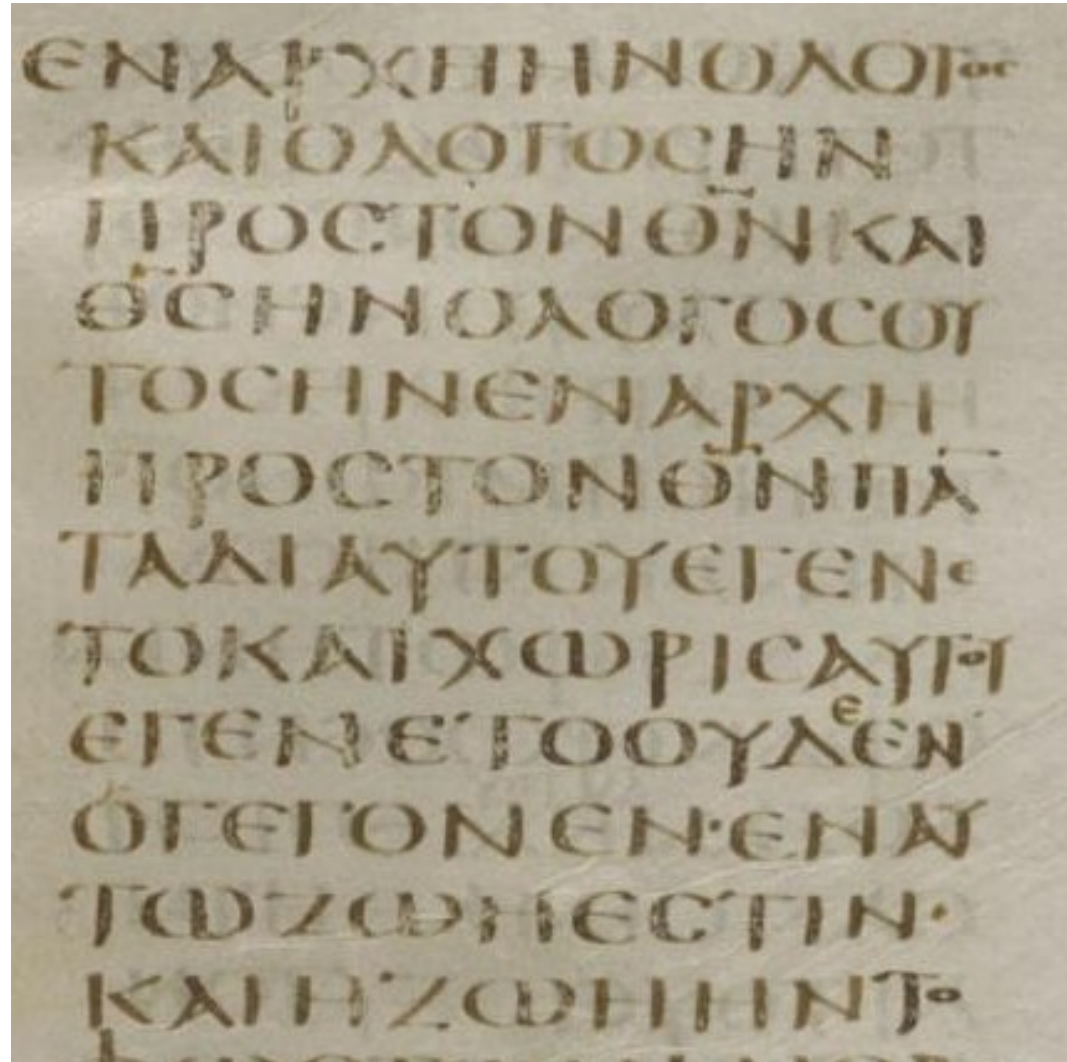 ΕΝΑΡΧΗΗΝΟΛΟΓΟϹ
ΚΑΙΟΛΟΓΟϹΗΝ
ΠΡΟϹΤΟΝΘ̅Ν̅ΚΑΙ
Θ̅Ϲ̅ΗΝΟΛΟΓΟϹΟΥ
ΤΟϹΗΝΕΝΑΡΧΗ
ΠΡΟϹΤΟΝΘ̅Ν̅ΠΑ̅
ΤΑΔΙΑΥΤΟΥΕΓΕΝΕ
ΤΟΚΑΙΧΩΡΙϹΑΥΤΟΥ
ΕΓΕΝΕΤΟΟΥΔΕΕΝ
ΟΓΕΓΟΝΕΝ·ΕΝΑΥ
ΤΩΖΩΗΕϹΤΙΝ·
ΚΑΙΗΖΩΗΗΝΤΟ